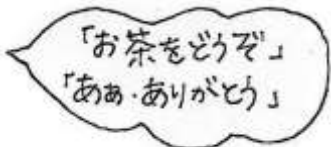 「お茶をどうぞ」
「あぁ・ありがとう」